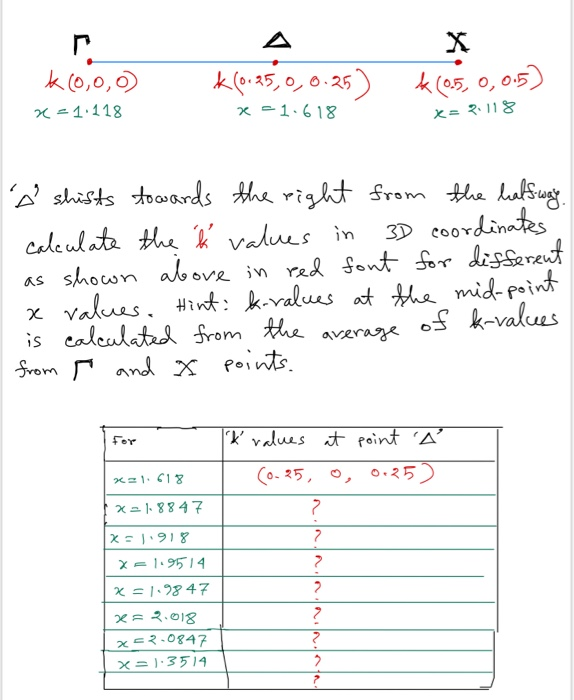 Γ Δ X
k(0,0,0) k(0.25, 0, 0.25) k(0.5, 0, 0.5)
x = 1.118 x = 1.618 x = 2.118
'Δ' shifts towards the right from the halfway.
calculate the 'k' values in 3D coordinates
as shown above in red font for different
x values. Hint: k-values at the mid-point
is calculated from the average of k-values
from Γ and X points.
For 'k' values at point 'Δ'
x = 1.618 (0.25, 0, 0.25)
x = 1.8847 ?
x = 1.918 ?
x = 1.9514 ?
x = 1.9847 ?
x = 2.018 ?
x = 2.0847 ?
x = 1.3514 ?
?